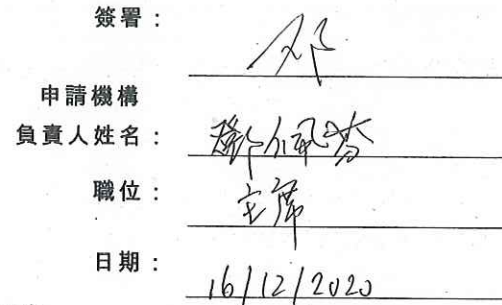 簽署：邓
申請機構
負責人姓名：鄧佩
職位：主席
日期：16/12/2020